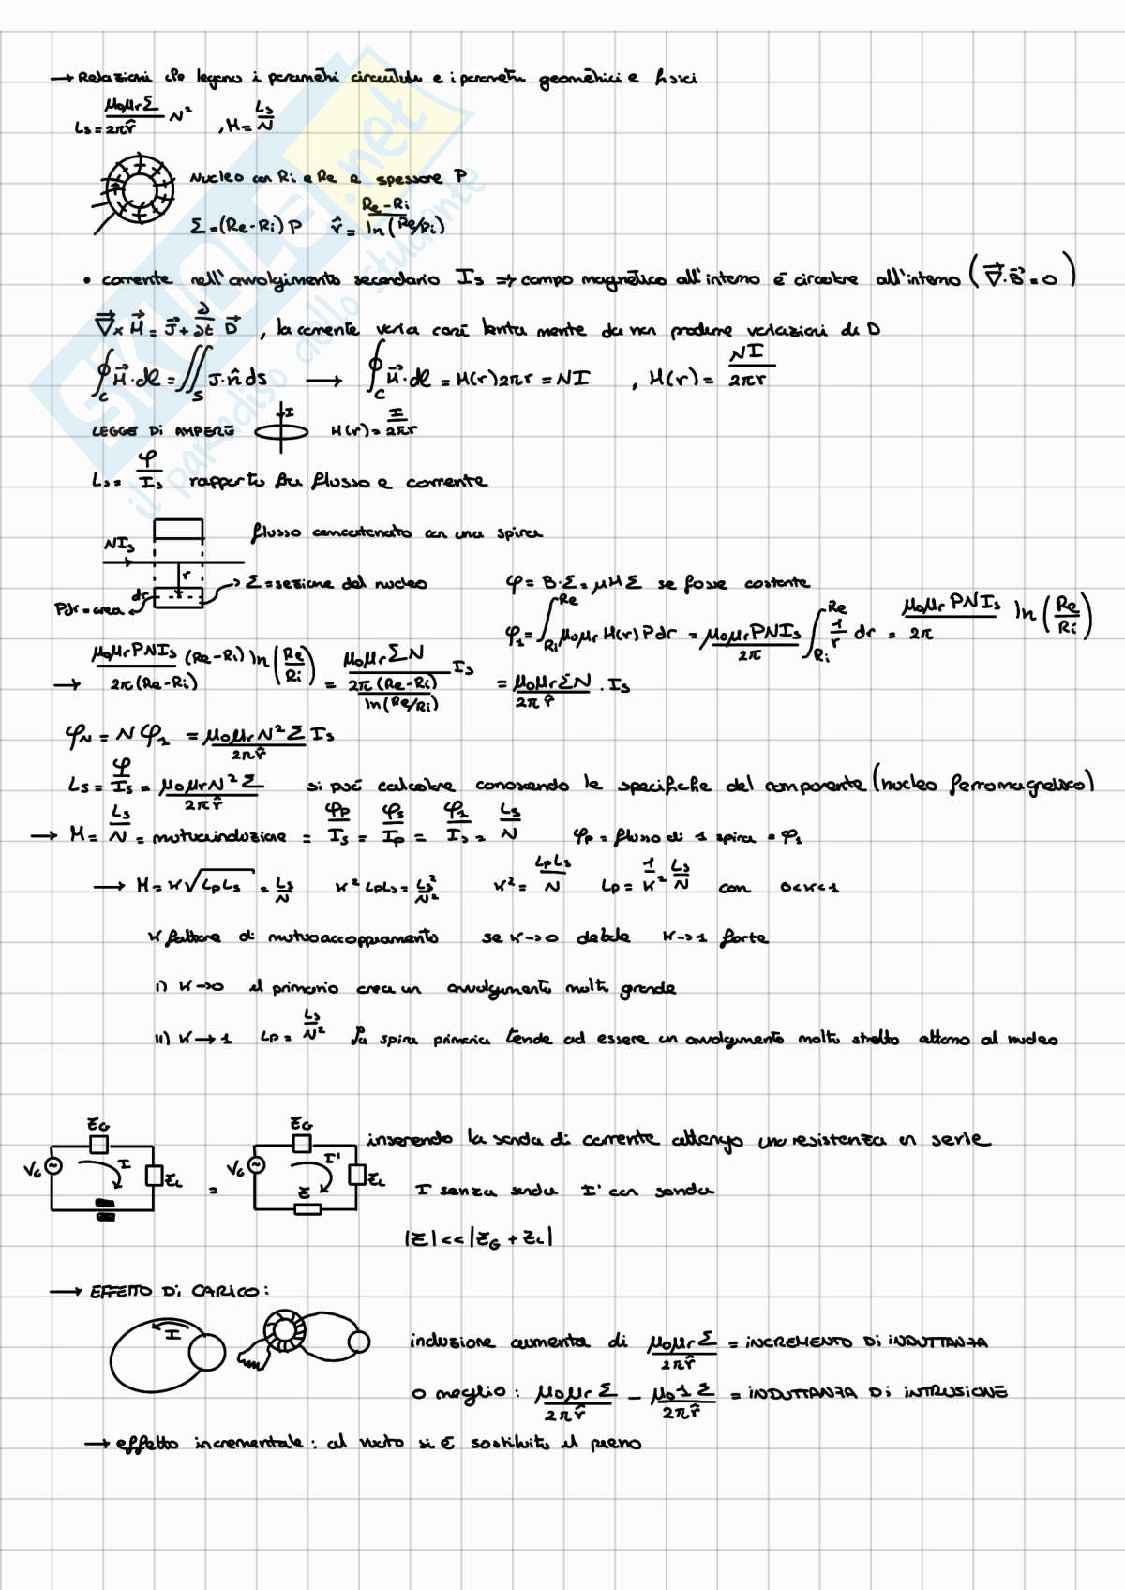 → Relazioni che legano i parametri circuitali e i parametri geometrici e fisici
Ls = μ₀μrΣ/2πr̂ N² , M = Ls/N
Nucleo con Ri e Re e spessore P
Σ = (Re-Ri) P r̂ = Re-Ri/ln(Re/Ri)
• corrente nell'avvolgimento secondario Is => campo magnetico all'interno è circolare all'interno (∇⃗·B⃗ = 0)
∇⃗×H⃗ = J⃗ + ∂/∂t D⃗ , la corrente varia così lenta mente da non produrre variazioni di D
∮c H⃗·dl = ∬s J·n̂ ds → ∮c H⃗·dl = H(r)2πr = NI , H(r) = NI/2πr
LEGGE DI AMPERE I H(r) = I/2πr
Ls = φ/Is rapporto fra flusso e corrente
flusso concatenato con una spira
NIs
r
dr
Pdr = area
Σ = sezione del nucleo
φ = B·Σ = μHΣ se fosse costante
φ₁ = ∫Ri^Re μ₀μr H(r) P dr = μ₀μr PNIs/2π ∫Ri^Re 1/r dr = μ₀μr PNIs/2π ln(Re/Ri)
→ μ₀μr PNIs/2π(Re-Ri) (Re-Ri) ln(Re/Ri) = μ₀μrΣN/(2π(Re-Ri)/ln(Re/Ri)) Is = μ₀μrΣN/2πr̂ · Is
φN = Nφ₁ = μ₀μrN²Σ/2πr̂ Is
Ls = φ/Is = μ₀μrN²Σ/2πr̂ si può calcolare conoscendo le specifiche del componente (nucleo ferromagnetico)
→ M = Ls/N = mutua induzione = φp/Is = φs/Ip = φ₁/Is = Ls/N φp = flusso di 1 spira = φ₁
→ M = K√LpLs = Ls/N K² LpLs = Ls²/N² K² = LpLs/N Lp = 1/K² Ls/N con 0<K<1
K fattore di mutuo accoppiamento se K→0 debole K→1 forte
i) K→0 il primario crea un avvolgimento molto grande
ii) K→1 Lp = Ls/N² la spira primaria tende ad essere un avvolgimento molto stretto attorno al nucleo
ZG ZG
VG I ZL = VG I' ZL
Z
inserendo la sonda di corrente ottengo una resistenza in serie
I senza sonda I' con sonda
|Z| << |ZG + ZL|
→ EFFETTO DI CARICO:
I
induzione aumenta di μ₀μrΣ/2πr̂ = INCREMENTO DI INDUTTANZA
o meglio: μ₀μrΣ/2πr̂ - μ₀1Σ/2πr̂ = INDUTTANZA DI INTRUSIONE
→ effetto incrementale: al vuoto si è sostituito il pieno
SKUOLA.net
il paradiso dello studente